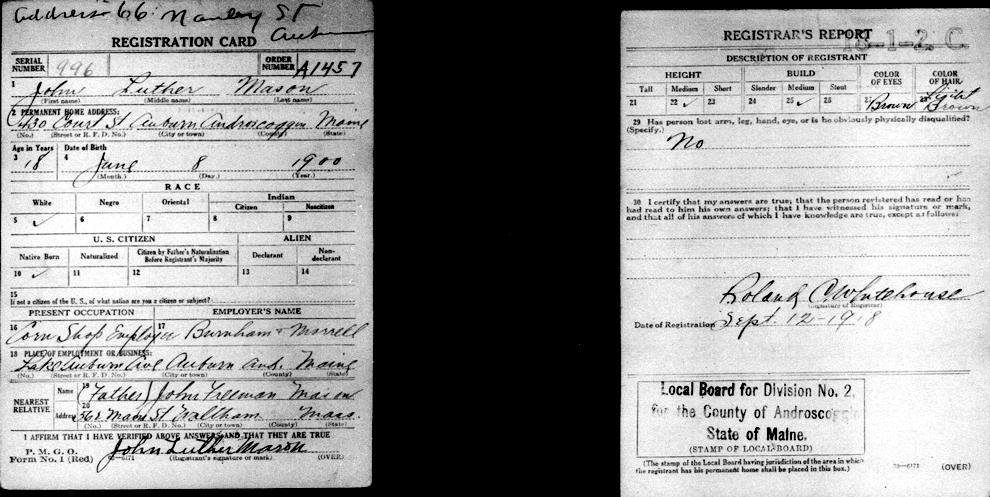 Address 66 Manley St
Auburn
REGISTRATION CARD
SERIAL NUMBER 996 ORDER NUMBER A1457
1 John Luther Mason
(First name) (Middle name) (Last name)
2 PERMANENT HOME ADDRESS:
430 Court St Auburn Androscoggin Maine
(No.) (Street or R. F. D. No.) (City or town) (County) (State)
Age in Years Date of Birth
3 18 4 June 8 1900
(Month.) (Day.) (Year.)
RACE
White Negro Oriental Indian
Citizen Noncitizen
5 ✓ 6 7 8 9
U. S. CITIZEN ALIEN
Native Born Naturalized Citizen by Father's Naturalization Before Registrant's Majority Declarant Non-declarant
10 ✓ 11 12 13 14
15
If not a citizen of the U. S., of what nation are you a citizen or subject?
PRESENT OCCUPATION EMPLOYER'S NAME
16 Corn Shop Employee 17 Burnham & Morrell
18 PLACE OF EMPLOYMENT OR BUSINESS:
Lake Auburn Ave Auburn And. Maine
(No.) (Street or R. F. D. No.) (City or town) (County) (State)
NEAREST RELATIVE Name 19 (Father) John Freeman Mason
Address 20 Main St Waltham Mass.
(No.) (Street or R. F. D. No.) (City or town) (County) (State)
I AFFIRM THAT I HAVE VERIFIED ABOVE ANSWERS AND THAT THEY ARE TRUE
P. M. G. O.
Form No. 1 (Red) John Luther Mason
(Registrant's signature or mark) (OVER)
REGISTRAR'S REPORT
18-1-2. C.
DESCRIPTION OF REGISTRANT
HEIGHT BUILD COLOR OF EYES COLOR OF HAIR
Tall Medium Short Slender Medium Stout
21 22 ✓ 23 24 25 ✓ 26 27 Brown 28 Light Brown
29 Has person lost arm, leg, hand, eye, or is he obviously physically disqualified?
(Specify.)
No
30 I certify that my answers are true; that the person registered has read or has
had read to him his own answers; that I have witnessed his signature or mark,
and that all of his answers of which I have knowledge are true, except as follows:
Roland C. Whitehouse
(Signature of Registrar)
Date of Registration Sept. 12-1918
Local Board for Division No. 2,
for the County of Androscoggin
State of Maine.
(STAMP OF LOCAL BOARD)
(The stamp of the Local Board having jurisdiction of the area in which
the registrant has his permanent home shall be placed in this box.) (OVER)